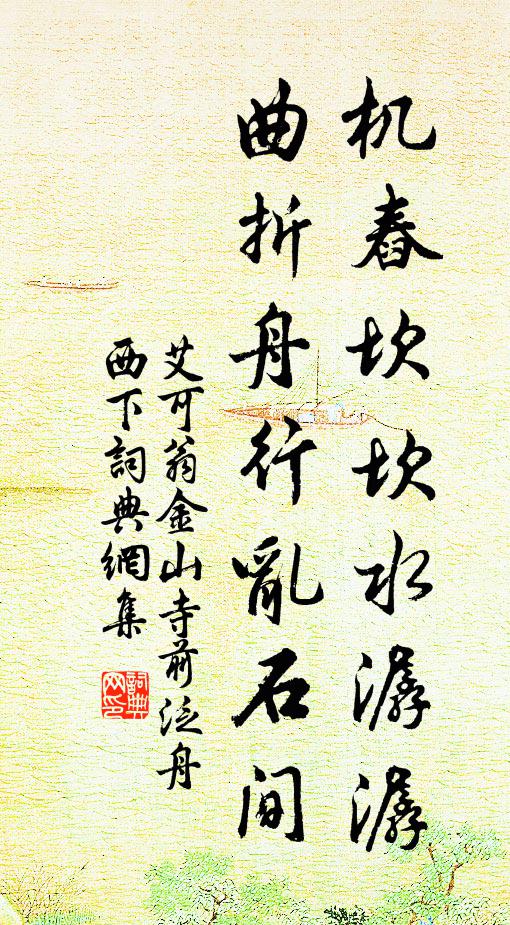 机舂坎坎水潺潺
曲折舟行亂石间
艾可翁金山寺前泛舟
西下詞典網集
詞典网印